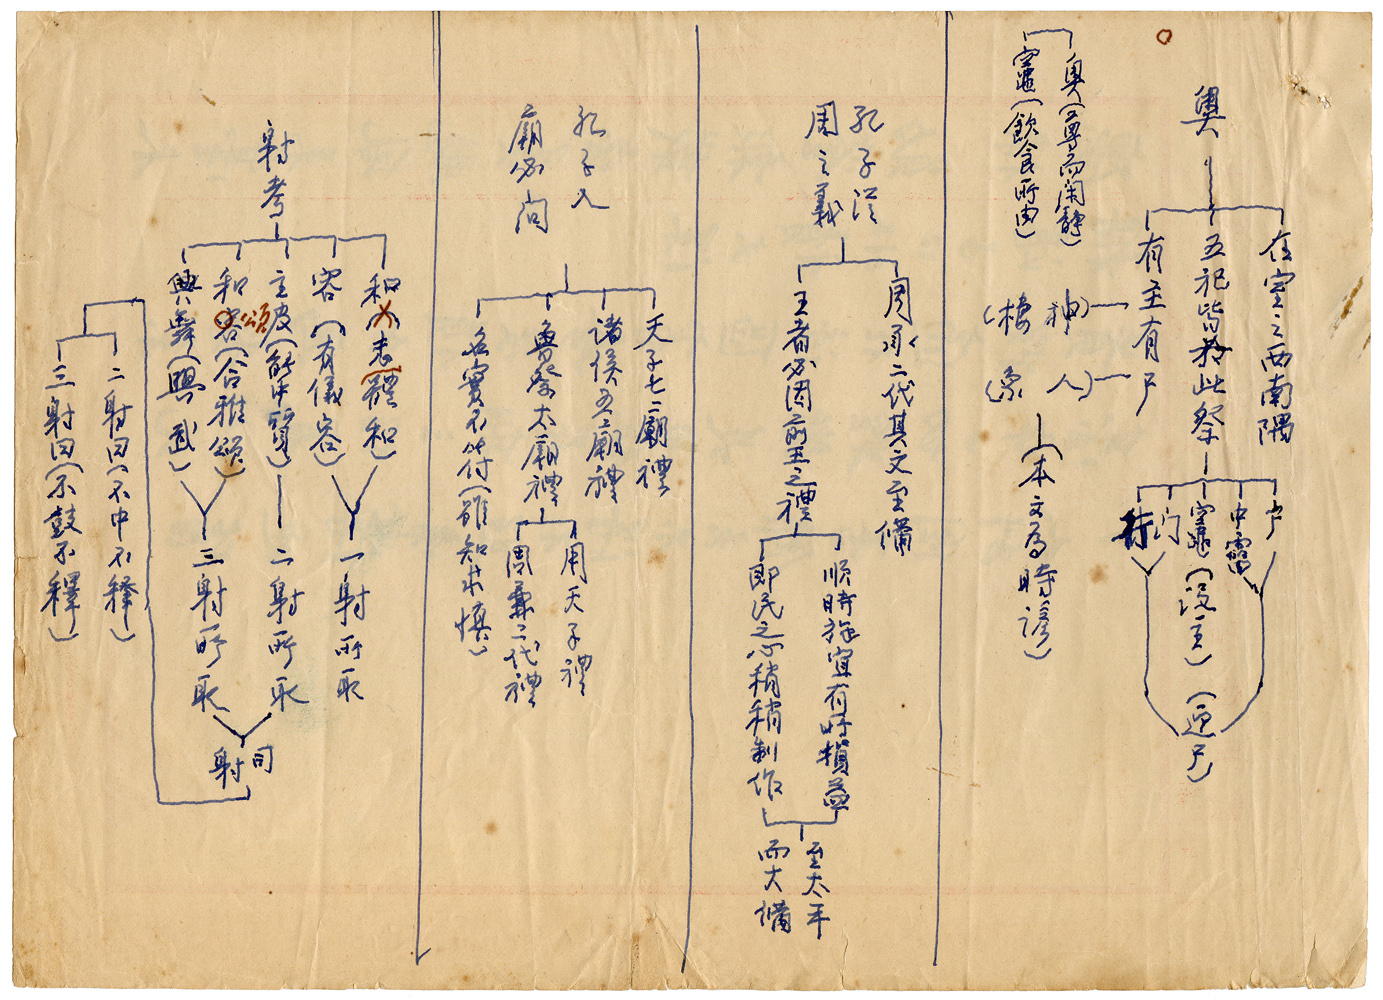 奧
在室之西南隅
五祀皆於此祭
有主有尸
戶
中霤
竈(設主)
門
行
(迎尸)
(神 棲)
(人 象)
(本文為時諺)
奧(尊而閑靜)
竈(飲食所由)
孔子從
周之義
周承二代其文至備
王者必因前王之禮
順時施宜有所損益
即民之心稍稍制作
至太平
而大備
孔子入
廟必問
天子七廟禮
諸侯五廟禮
魯祭太廟禮
名實不符(雖知亦慎)
用天子禮
周兼二代禮
射考
和(志體和)
容(有儀容)
主皮(能中質)
和頌(合雅頌)
興舞(興武)
一射所取
二射所取
三射所取
司射
二射曰(不中不釋)
三射曰(不鼓不釋)